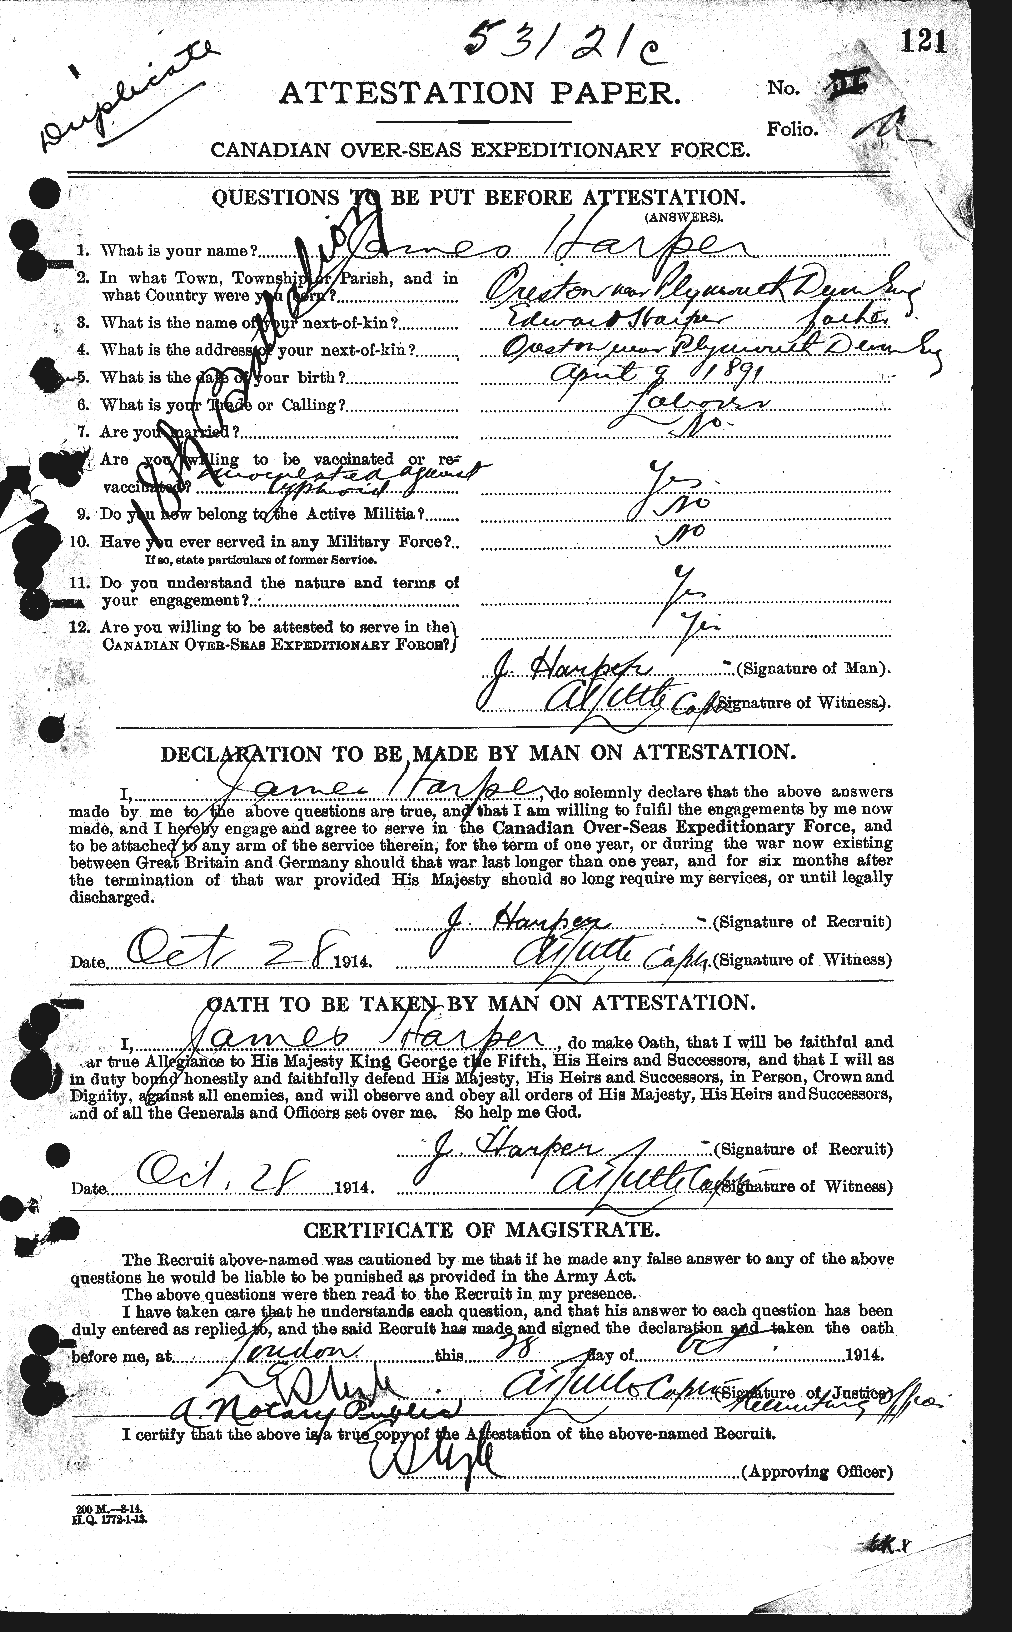 53121c
121
Duplicate
ATTESTATION PAPER.
No. III
Folio.
CANADIAN OVER-SEAS EXPEDITIONARY FORCE.
18th Battalion
QUESTIONS TO BE PUT BEFORE ATTESTATION.
(ANSWERS).
1. What is your name? James Harper
2. In what Town, Township or Parish, and in
what Country were you born? Oreston near Plymouth Devon Eng
3. What is the name of your next-of-kin? Edward Harper father
4. What is the address of your next-of-kin? Oreston near Plymouth Devon Eng
5. What is the date of your birth? April 9 1891
6. What is your Trade or Calling? Laborer
7. Are you married? No.
Are you willing to be vaccinated or re-
vaccinated? inoculated against typhoid Yes
9. Do you now belong to the Active Militia? No
10. Have you ever served in any Military Force? No
If so, state particulars of former Service.
11. Do you understand the nature and terms of
your engagement? Yes
12. Are you willing to be attested to serve in the
CANADIAN OVER-SEAS EXPEDITIONARY FORCE? Yes
J. Harper (Signature of Man).
Capt. (Signature of Witness).
DECLARATION TO BE MADE BY MAN ON ATTESTATION.
I, James Harper, do solemnly declare that the above answers
made by me to the above questions are true, and that I am willing to fulfil the engagements by me now
made, and I hereby engage and agree to serve in the Canadian Over-Seas Expeditionary Force, and
to be attached to any arm of the service therein, for the term of one year, or during the war now existing
between Great Britain and Germany should that war last longer than one year, and for six months after
the termination of that war provided His Majesty should so long require my services, or until legally
discharged.
J. Harper (Signature of Recruit)
Date Oct. 28 1914. Capt. (Signature of Witness)
OATH TO BE TAKEN BY MAN ON ATTESTATION.
I, James Harper, do make Oath, that I will be faithful and
ar true Allegiance to His Majesty King George the Fifth, His Heirs and Successors, and that I will as
in duty bound honestly and faithfully defend His Majesty, His Heirs and Successors, in Person, Crown and
Dignity, against all enemies, and will observe and obey all orders of His Majesty, His Heirs and Successors,
and of all the Generals and Officers set over me. So help me God.
J. Harper (Signature of Recruit)
Date Oct. 28 1914. Capt. (Signature of Witness)
CERTIFICATE OF MAGISTRATE.
The Recruit above-named was cautioned by me that if he made any false answer to any of the above
questions he would be liable to be punished as provided in the Army Act.
The above questions were then read to the Recruit in my presence.
I have taken care that he understands each question, and that his answer to each question has been
duly entered as replied to, and the said Recruit has made and signed the declaration and taken the oath
before me, at London this 28 day of Oct. 1914.
Capt. (Signature of Justice)
Recruiting Officer
A Notary Public
I certify that the above is a true copy of the Attestation of the above-named Recruit.
(Approving Officer)
200 M.—8-14.
H.Q. 1772-1-13.